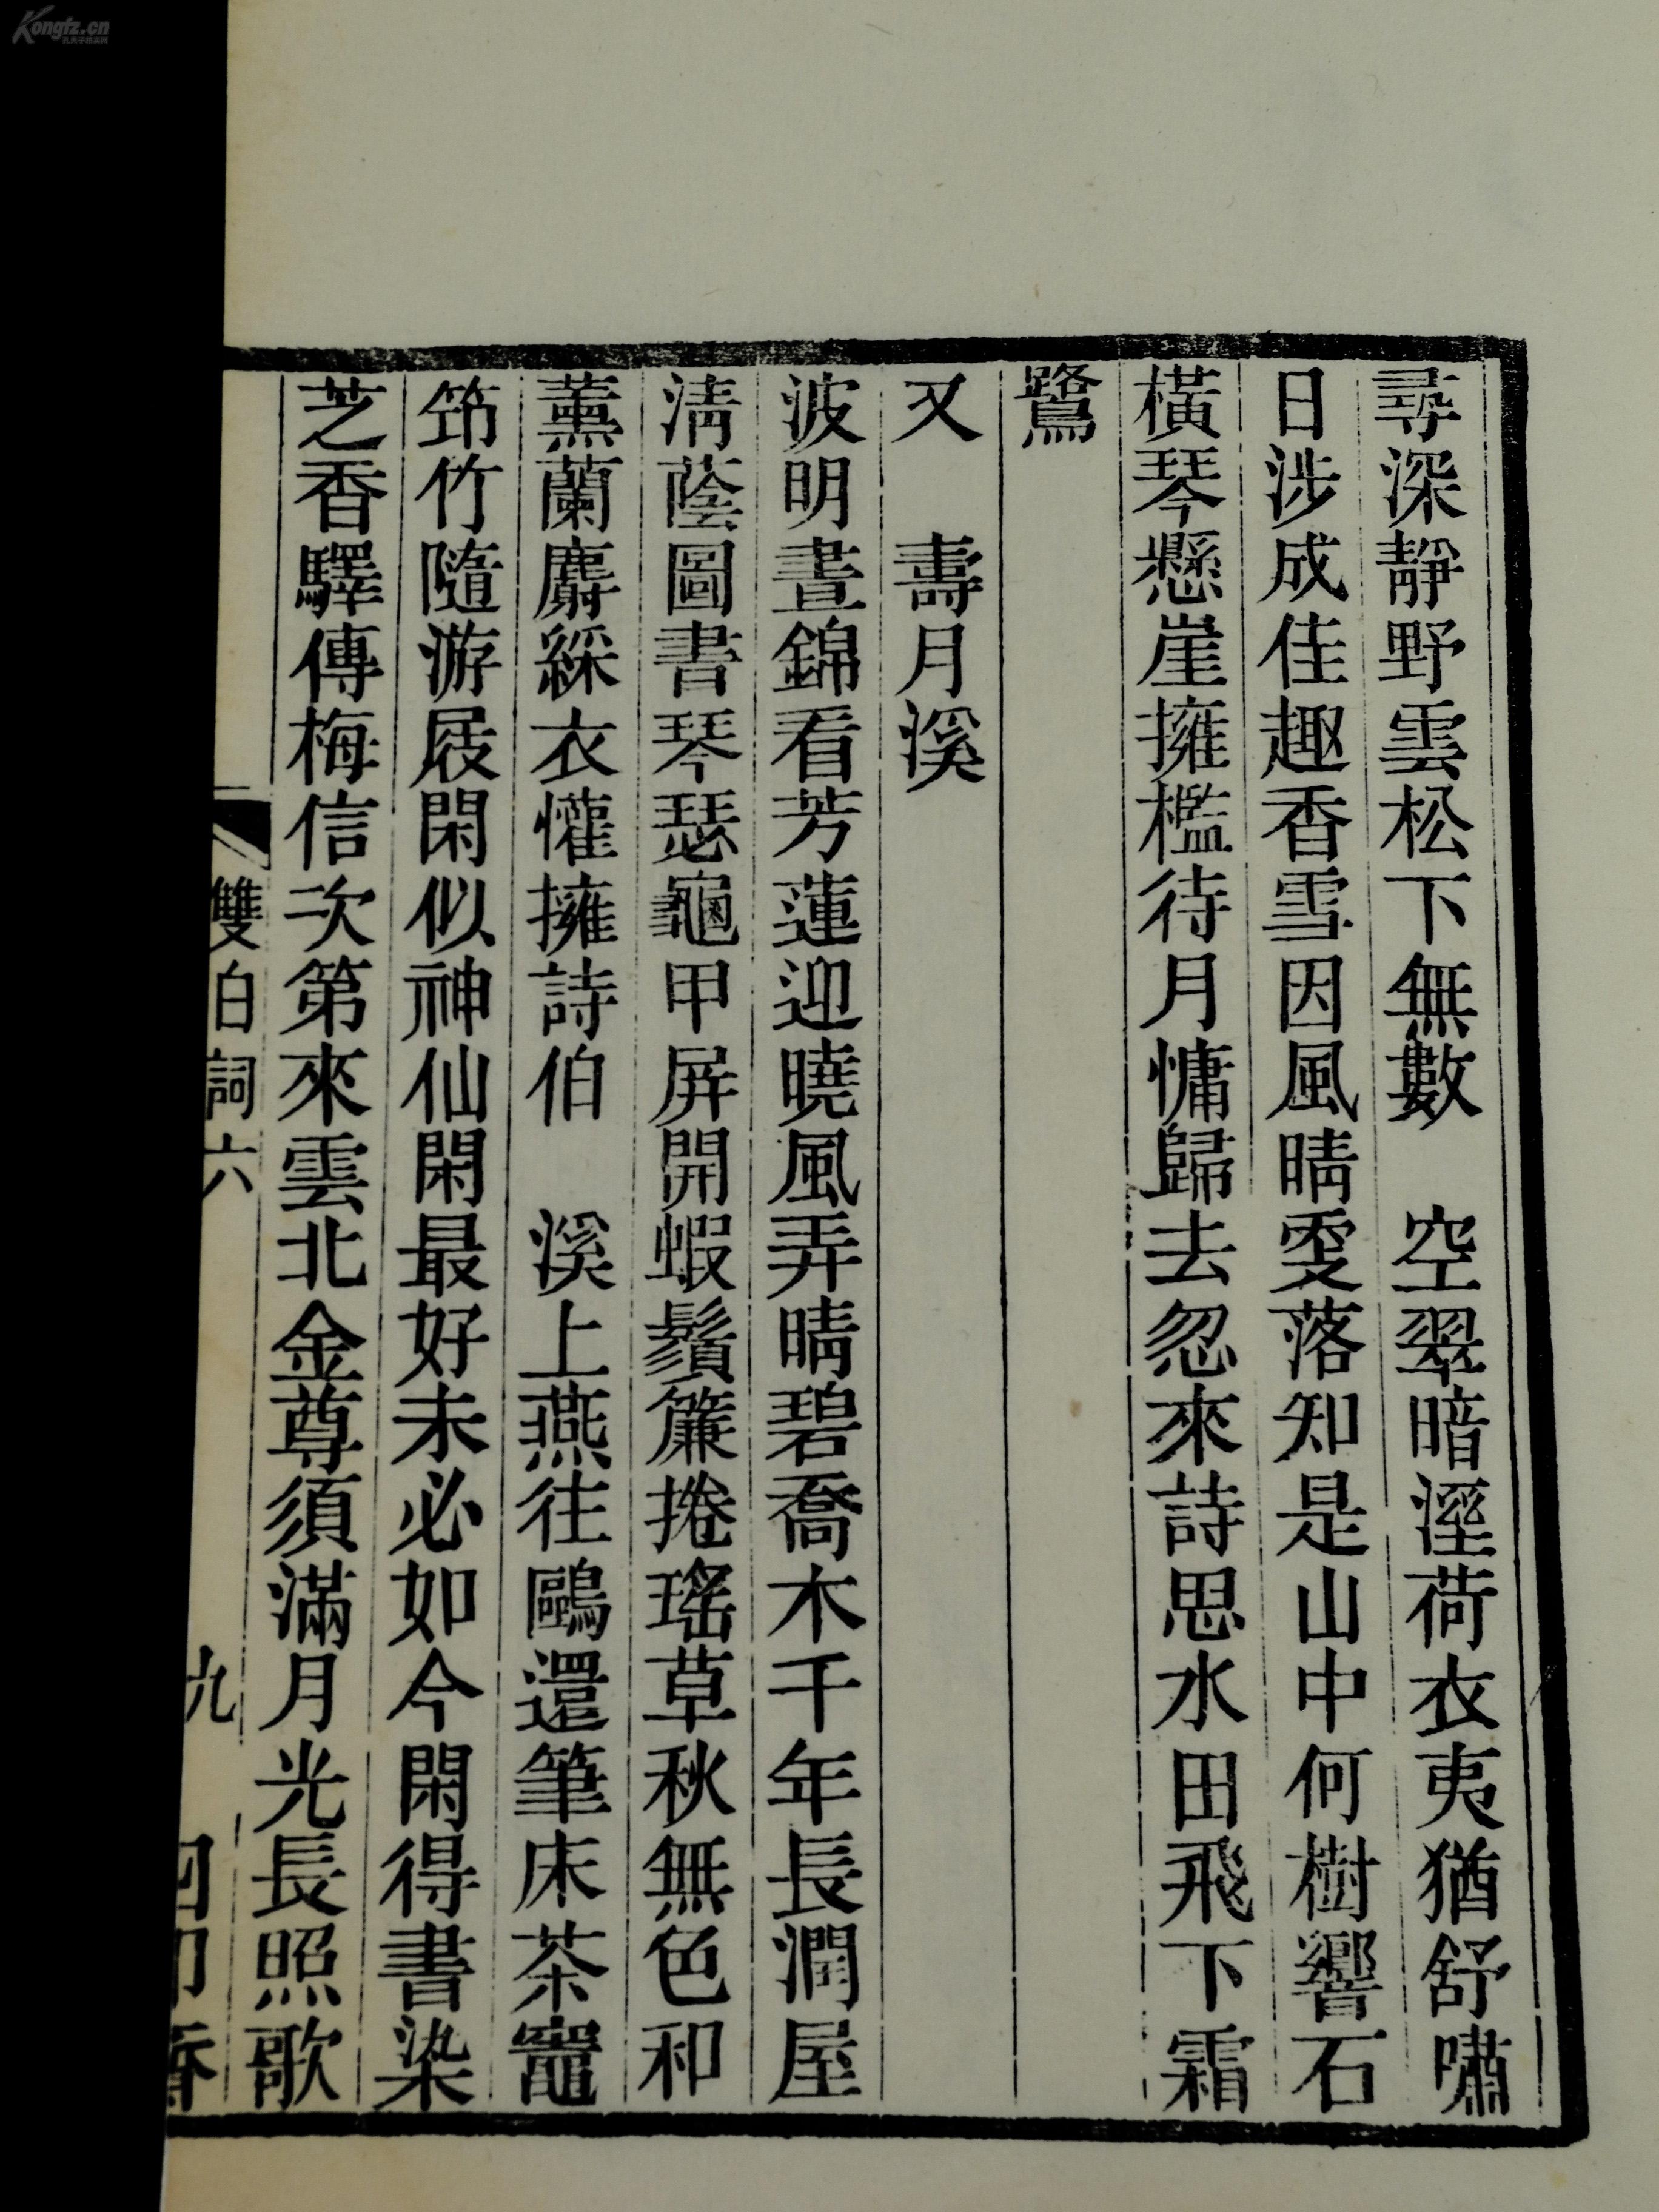 Kongfz.cn
孔夫子旧书网
尋深靜野雲松下無數　空翠暗溼荷衣夷猶舒嘯
日涉成佳趣香雪因風晴雯落知是山中何樹響石
橫琴懸崖擁檻待月慵歸去忽來詩思水田飛下霜
鷺
又　壽月溪
波明晝錦看芳蓮迎曉風弄晴碧喬木千年長潤屋
淸蔭圖書琴瑟龜甲屏開蝦鬚簾捲瑤草秋無色和
薰蘭麝綵衣懽擁詩伯　溪上燕往鷗還筆床茶竈
筇竹隨游屐閑似神仙閑最好未必如今閑得書染
芝香驛傳梅信次第來雲北金尊須滿月光長照歌
雙白詞六　九　四印齋